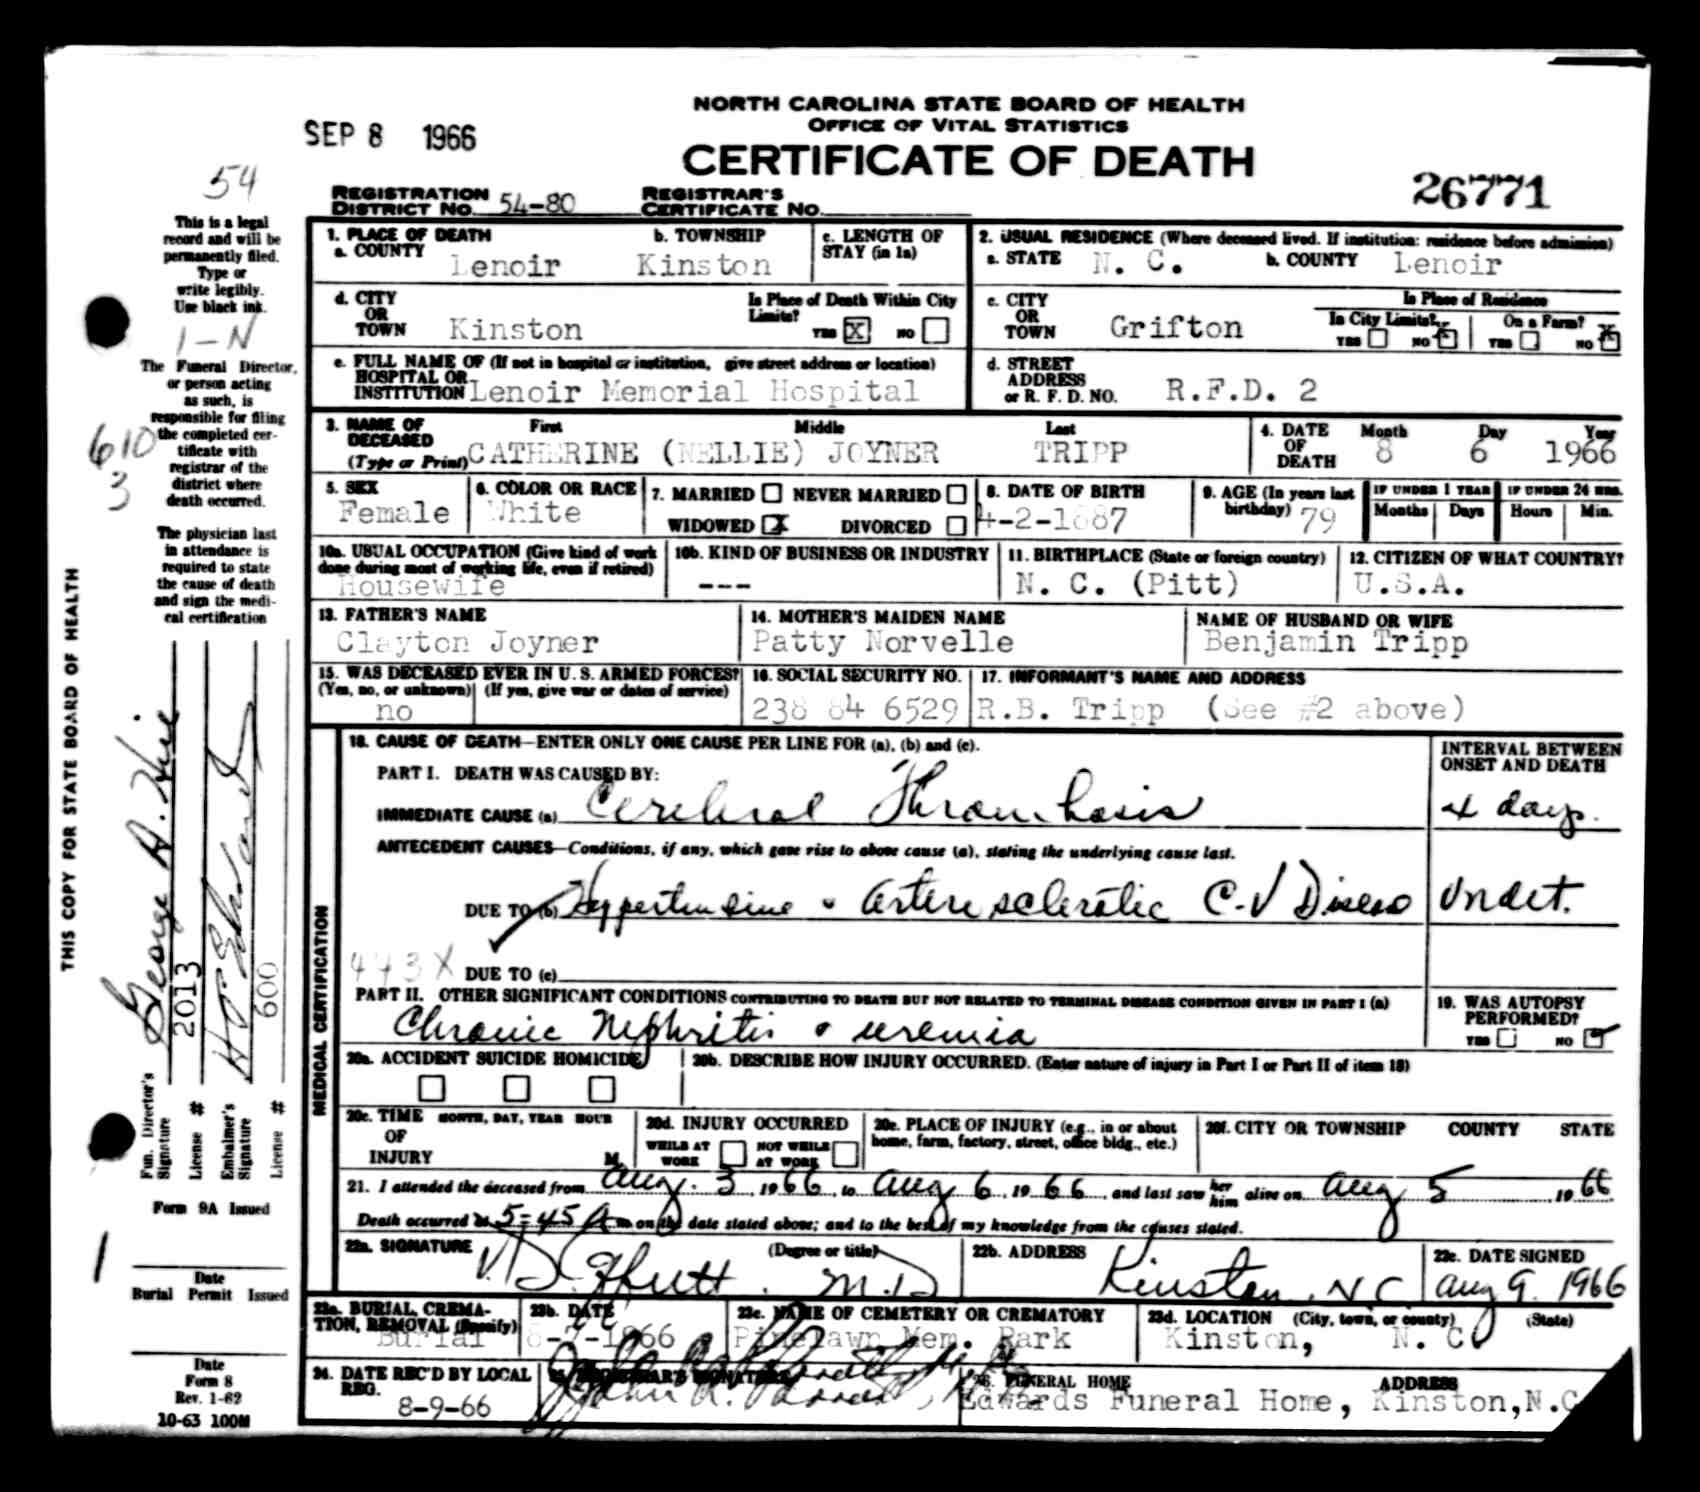 NORTH CAROLINA STATE BOARD OF HEALTH
OFFICE OF VITAL STATISTICS
CERTIFICATE OF DEATH
SEP 8 1966
26771
54
REGISTRATION DISTRICT No. 54-80 REGISTRAR'S CERTIFICATE No.
This is a legal
record and will be
permanently filed.
Type or
write legibly.
Use black ink.
1-N
The Funeral Director,
or person acting
as such, is
responsible for filing
the completed cer-
tificate with
registrar of the
district where
death occurred.
610
3
The physician last
in attendance is
required to state
the cause of death
and sign the medi-
cal certification
THIS COPY FOR STATE BOARD OF HEALTH
Fun. Director's Signature George A.
License # 2013
Embalmer's Signature
License # 600
Form 9A Issued
1
Date
Burial Permit Issued
Date
Form 8
Rev. 1-62
10-63 100M
1. PLACE OF DEATH
a. COUNTY Lenoir
b. TOWNSHIP Kinston
c. LENGTH OF STAY (in 1a)
2. USUAL RESIDENCE (Where deceased lived. If institution: residence before admission)
a. STATE N. C. b. COUNTY Lenoir
d. CITY OR TOWN Kinston
Is Place of Death Within City Limits? YES X NO
c. CITY OR TOWN Grifton
Is Place of Residence
In City Limits? YES NO X On a Farm? YES NO X
e. FULL NAME OF (If not in hospital or institution, give street address or location)
HOSPITAL OR INSTITUTION Lenoir Memorial Hospital
d. STREET ADDRESS or R. F. D. NO. R.F.D. 2
3. NAME OF DECEASED (Type or Print) First Middle Last
CATHERINE (NELLIE) JOYNER TRIPP
4. DATE OF DEATH Month Day Year
8 6 1966
5. SEX Female
6. COLOR OR RACE White
7. MARRIED NEVER MARRIED
WIDOWED X DIVORCED
8. DATE OF BIRTH 4-2-1887
9. AGE (In years last birthday) 79
IF UNDER 1 YEAR Months Days
IF UNDER 24 HRS. Hours Min.
10a. USUAL OCCUPATION (Give kind of work done during most of working life, even if retired)
Housewife
10b. KIND OF BUSINESS OR INDUSTRY
---
11. BIRTHPLACE (State or foreign country)
N. C. (Pitt)
12. CITIZEN OF WHAT COUNTRY?
U.S.A.
13. FATHER'S NAME
Clayton Joyner
14. MOTHER'S MAIDEN NAME
Patty Norvelle
NAME OF HUSBAND OR WIFE
Benjamin Tripp
15. WAS DECEASED EVER IN U. S. ARMED FORCES?
(Yes, no, or unknown) (If yes, give war or dates of service)
no
16. SOCIAL SECURITY NO.
238 84 6529
17. INFORMANT'S NAME AND ADDRESS
R.B. Tripp (See #2 above)
MEDICAL CERTIFICATION
18. CAUSE OF DEATH—ENTER ONLY ONE CAUSE PER LINE FOR (a), (b) and (c).
INTERVAL BETWEEN ONSET AND DEATH
PART I. DEATH WAS CAUSED BY:
IMMEDIATE CAUSE (a) Cerebral Thrombosis 4 days.
ANTECEDENT CAUSES—Conditions, if any, which gave rise to above cause (a), stating the underlying cause last.
DUE TO (b) Hypertensive & arteriosclerotic C-V Disease Undet.
443X DUE TO (c)
PART II. OTHER SIGNIFICANT CONDITIONS CONTRIBUTING TO DEATH BUT NOT RELATED TO TERMINAL DISEASE CONDITION GIVEN IN PART I (a)
Chronic Nephritis & uremia
19. WAS AUTOPSY PERFORMED?
YES NO
20a. ACCIDENT SUICIDE HOMICIDE
20b. DESCRIBE HOW INJURY OCCURRED. (Enter nature of injury in Part I or Part II of item 18)
20c. TIME OF INJURY MONTH, DAY, YEAR HOUR M.
20d. INJURY OCCURRED
WHILE AT WORK NOT WHILE AT WORK
20e. PLACE OF INJURY (e.g., in or about home, farm, factory, street, office bldg., etc.)
20f. CITY OR TOWNSHIP COUNTY STATE
21. I attended the deceased from Aug. 3, 1966, to Aug 6, 1966, and last saw her him alive on Aug 5 1966
Death occurred at 5-45 A m on the date stated above; and to the best of my knowledge from the causes stated.
22a. SIGNATURE (Degree or title) M.D
22b. ADDRESS Kinston, NC
22c. DATE SIGNED Aug 9, 1966
23a. BURIAL, CREMA-
TION, REMOVAL (Specify)
Burial
23b. DATE
8-7-1966
23c. NAME OF CEMETERY OR CREMATORY
Pinelawn Mem. Park
23d. LOCATION (City, town, or county) (State)
Kinston, N. C.
24. DATE REC'D BY LOCAL REG.
8-9-66
25. REGISTRAR'S SIGNATURE
John R.
26. FUNERAL HOME ADDRESS
Edwards Funeral Home, Kinston, N.C.